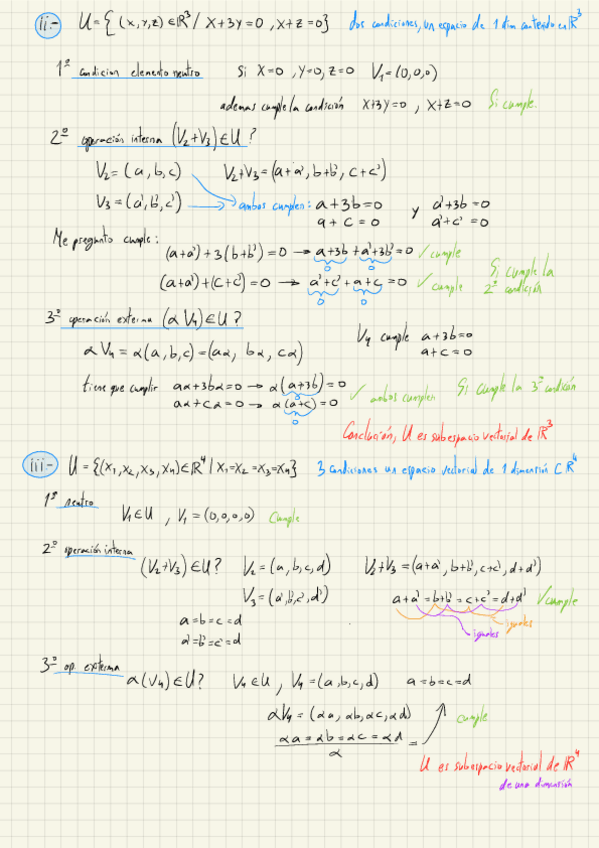 ii.- U = { (x,y,z) ∈ ℝ³ / x+3y=0 , x+z=0 } dos condiciones, un espacio de 1 dim contenido en ℝ³
1ª condicion elemento neutro Si x=0 , y=0, z=0 V₁=(0,0,0)
ademas cumple la condición x+3y=0 , x+z=0 Si cumple.
2º operación interna (V₂+V₃)∈U?
V₂=(a,b,c) V₂+V₃=(a+a', b+b', c+c')
V₃=(a',b',c') ambos cumplen: a+3b=0 y a'+3b=0
a+c=0 a'+c'=0
Me pregunto cumple:
(a+a')+3(b+b')=0 → a+3b+a'+3b'=0 ✓ cumple
0 0
(a+a')+(c+c')=0 → a'+c'+a+c=0 ✓ cumple
0 0
Si cumple la
2º condición
3º operación externa (αV₄)∈U?
V₄ cumple a+3b=0
a+c=0
αV₄=α(a,b,c)=(aα, bα, cα)
tiene que cumplir aα+3bα=0 → α(a+3b)=0
0
aα+cα=0 → α(a+c)=0
0
✓ ambos cumplen Si cumple la 3º condición
Conclusión, U es subespacio vectorial de ℝ³
iii.- U={(x₁,x₂,x₃,x₄)∈ℝ⁴/x₁=x₂=x₃=x₄} 3 condiciones un espacio vectorial de 1 dimensión C ℝ⁴
1º neutro
V₁∈U , V₁=(0,0,0,0) Cumple
2º operación interna
(V₂+V₃)∈U? V₂=(a,b,c,d) V₂+V₃=(a+a', b+b', c+c', d+d')
V₃=(a',b',c',d') a+a'=b+b'=c+c'=d+d' ✓ cumple
a=b=c=d
a'=b'=c'=d
iguales
iguales
3º op. externa
α(V₄)∈U? V₄∈U , V₄=(a,b,c,d) a=b=c=d
αV₄=(αa, αb, αc, αd) cumple
αa=αb=αc=αd =
α
U es subespacio vectorial de ℝ⁴
de una dimensión